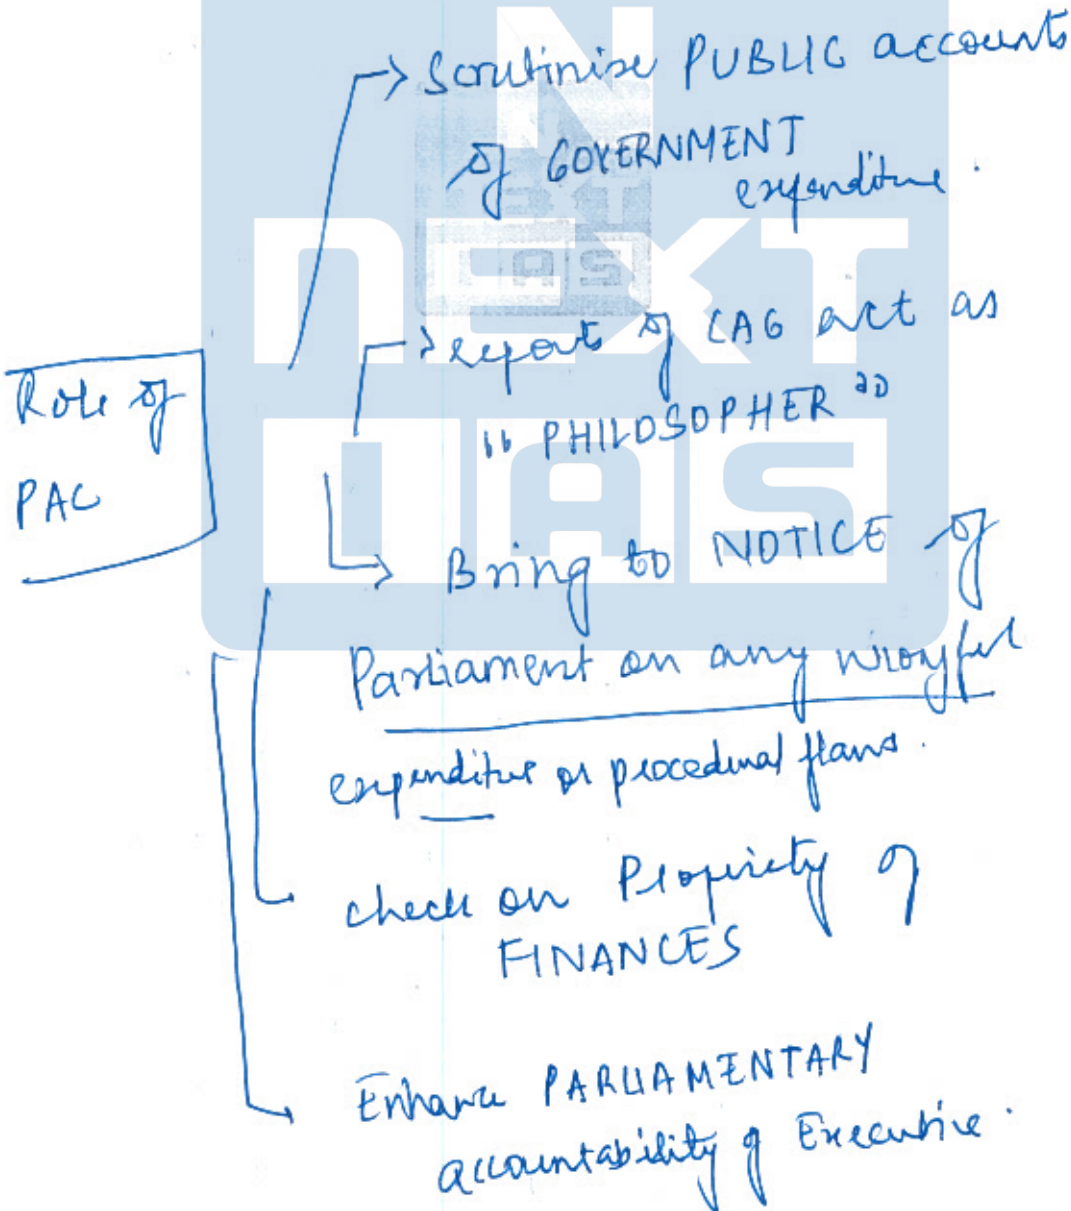 Scrutinise PUBLIC accounts
of GOVERNMENT
expenditure.
report of CAG act as
"PHILOSOPHER"
Role of
PAC
Bring to NOTICE of
Parliament on any wrongful
expenditure or procedural flaws.
check on Propriety of
FINANCES
Enhance PARLIAMENTARY
accountability of Executive.
NEXT
IAS